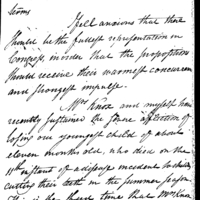 tions
I feel anxious that there
should be the fullest representation in
Congress, in order that the propositions
should receive their warmest concurrence
and strongest impulse.
Mrs Knox and myself have
recently sustained the severe affliction of
losing our youngest child of about
eleven months old, who died on the
11th instant of a disease incident to children
cutting their teeth in the summer season
This is the third time that Mrs Knox